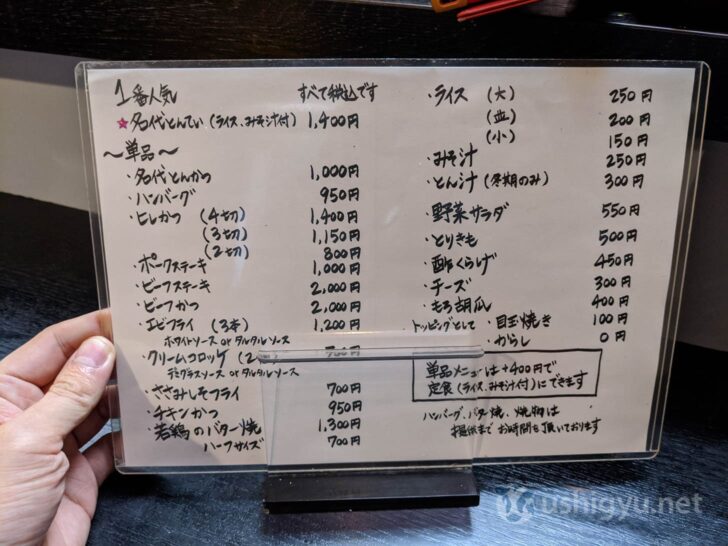 1番人気 すべて税込です
★名代とんてい(ライス、みそ汁付) 1,400円
～単品～
・名代とんかつ 1,000円
・ハンバーグ 950円
・ヒレかつ (4切) 1,400円
(3切) 1,150円
(2切) 800円
・ポークステーキ 1,000円
・ビーフステーキ 2,000円
・ビーフかつ 2,000円
・エビフライ (3本) 1,200円
ホワイトソース or タルタルソース
・クリームコロッケ (2
デミグラスソース or タルタルソース
・ささみしそフライ 700円
・チキンかつ 950円
・若鶏のバター焼 1,300円
ハーフサイズ 700円
・ライス (大) 250円
(皿) 200円
(小) 150円
・みそ汁 250円
・とん汁(冬期のみ) 300円
・野菜サラダ 550円
・とりきも 500円
・酢くらげ 450円
・チーズ 300円
・もろ胡瓜 400円
トッピングとして ・目玉焼き 100円
・からし 0円
単品メニューは+400円で
定食(ライス、みそ汁付)にできます
ハンバーグ、バター焼、焼物は
提供まで お時間を頂いております
ushigyu.net